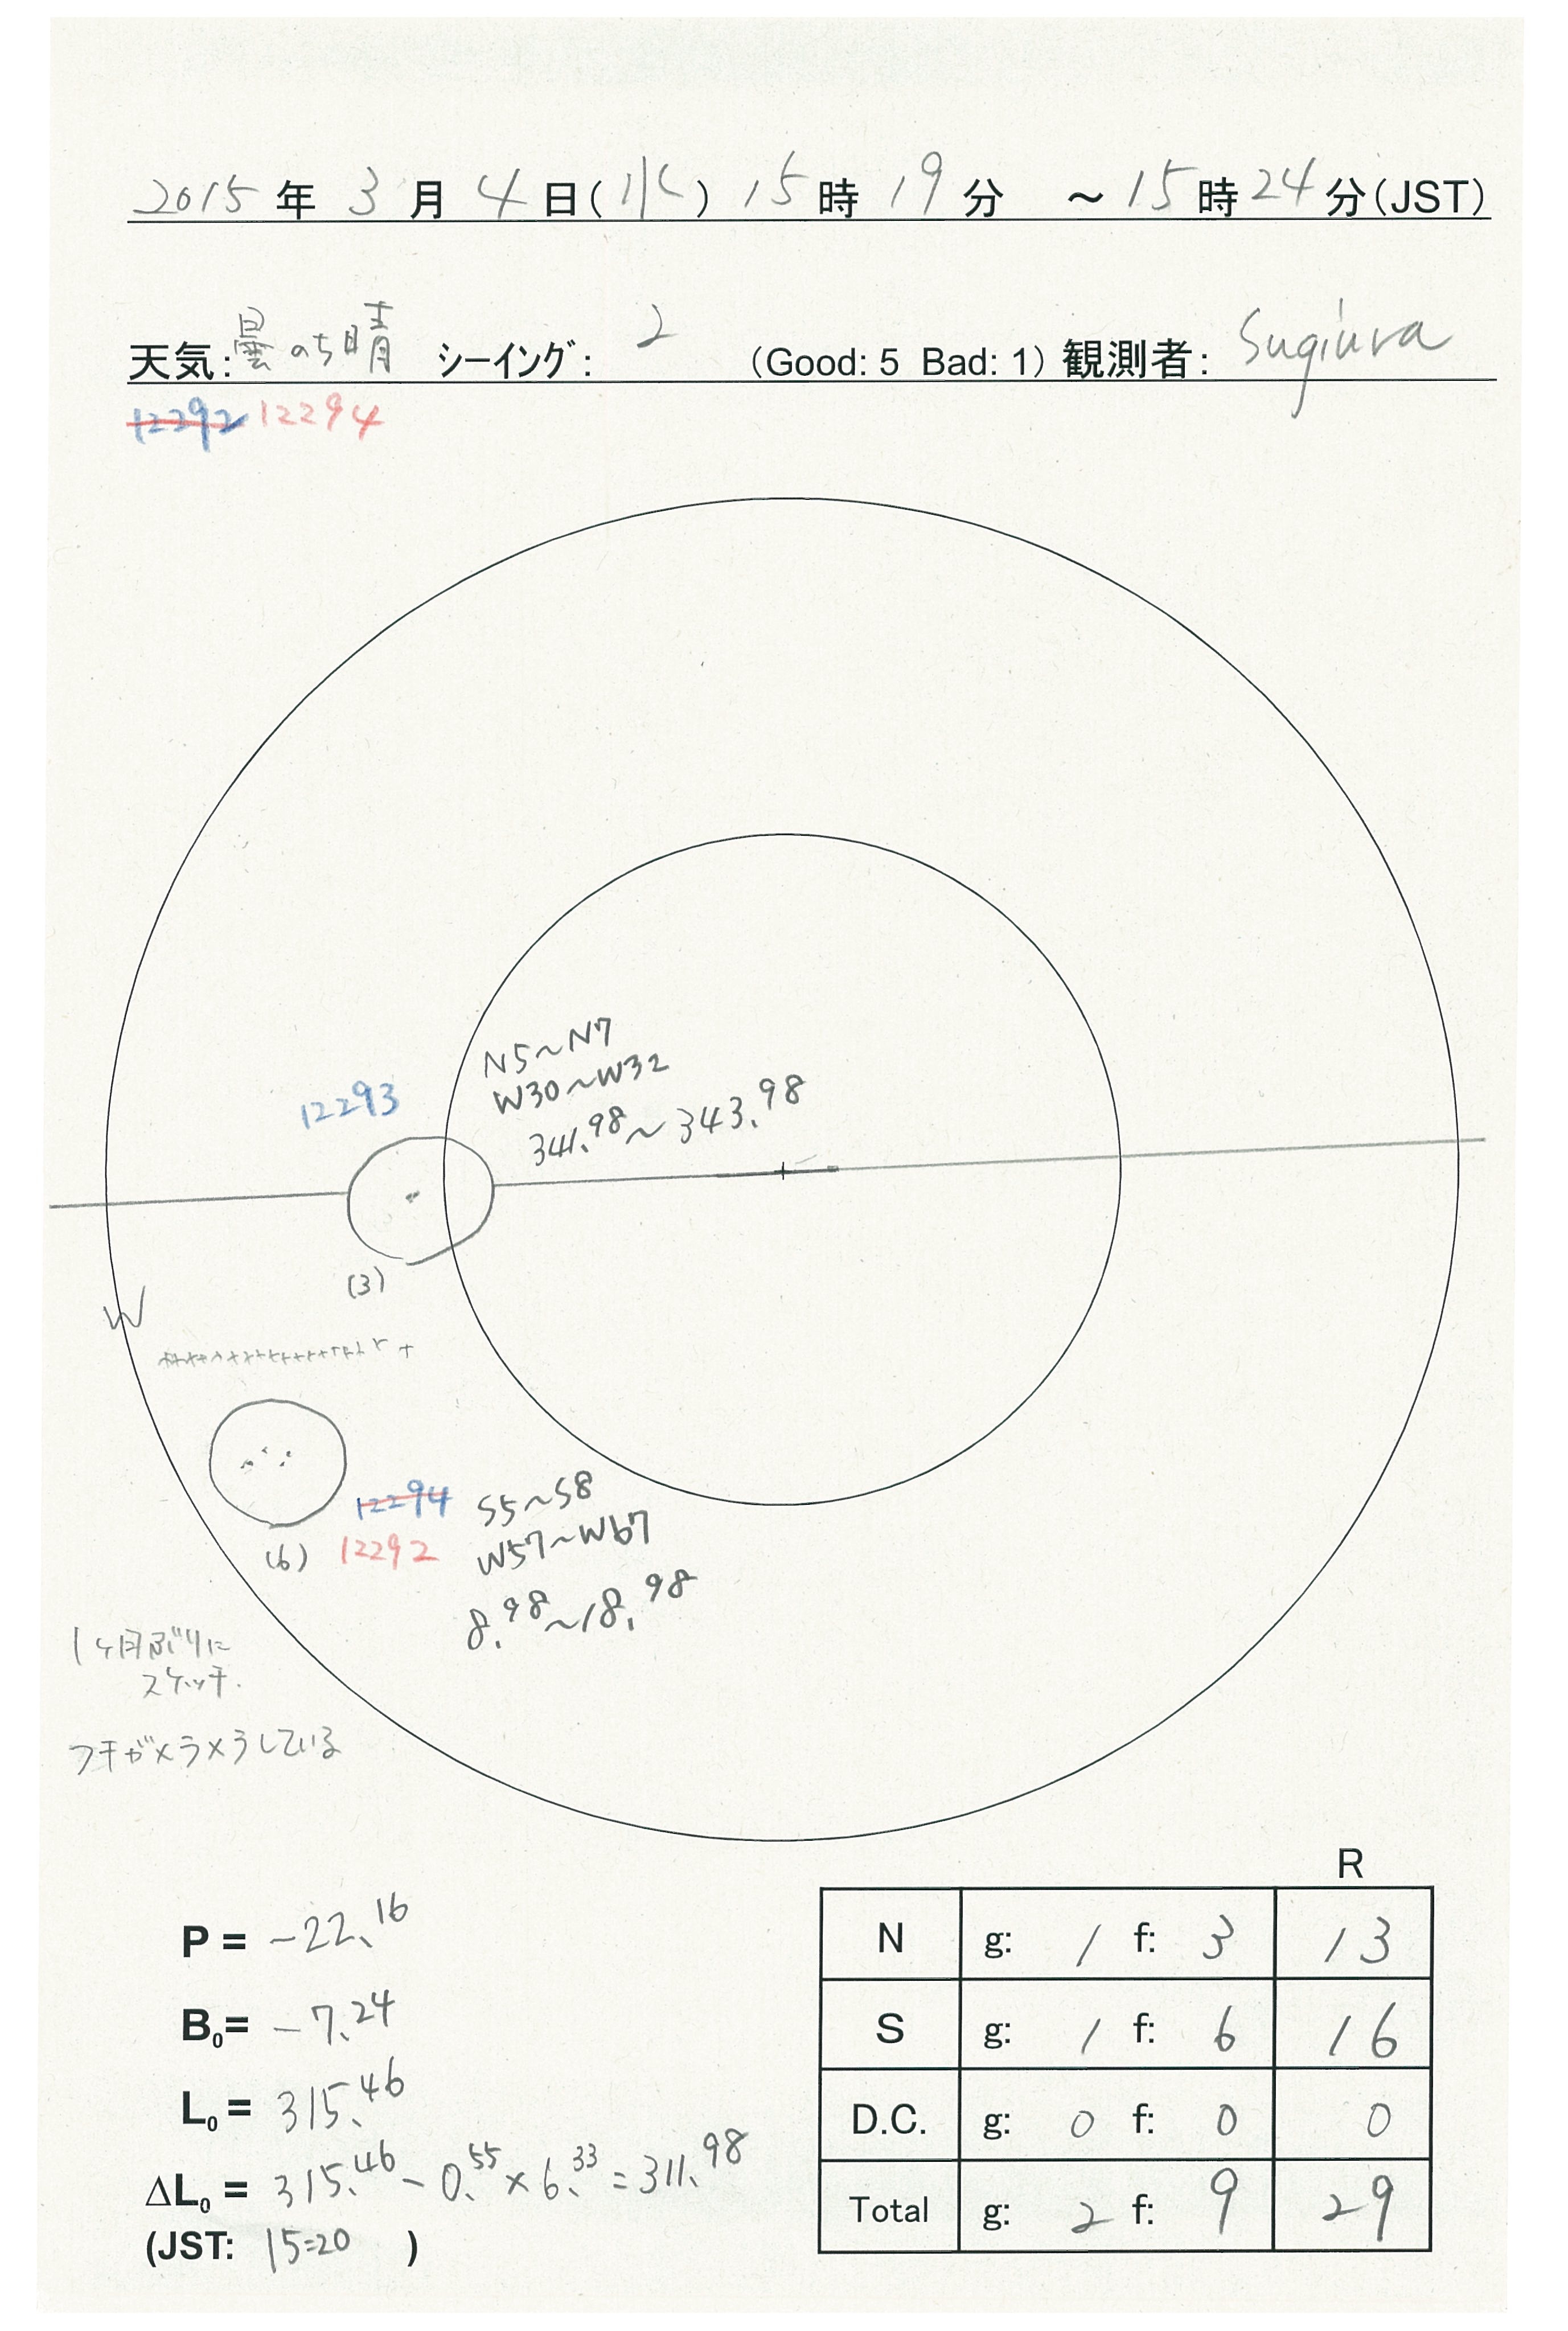 2015年 3月 4日(水) 15時 19分 ～15時24分(JST)
天気:曇のち晴 シーイング: 2 (Good: 5 Bad: 1) 観測者: Sugiura
12292 12294
N5～N7
W30～W32
341.98～343.98
12293
(3)
W
12294
12292
(6)
S5～S8
W57～W67
8.98～18.98
1ヶ月ぶりに
スケッチ.
フチがメラメラしている
R
P = -22.16
B0= -7.24
L0= 315.46
ΔL0= 315.46-0.55×6.33=311.98
(JST: 15:20 )
N g: 1 f: 3 13
S g: 1 f: 6 16
D.C. g: 0 f: 0 0
Total g: 2 f: 9 29